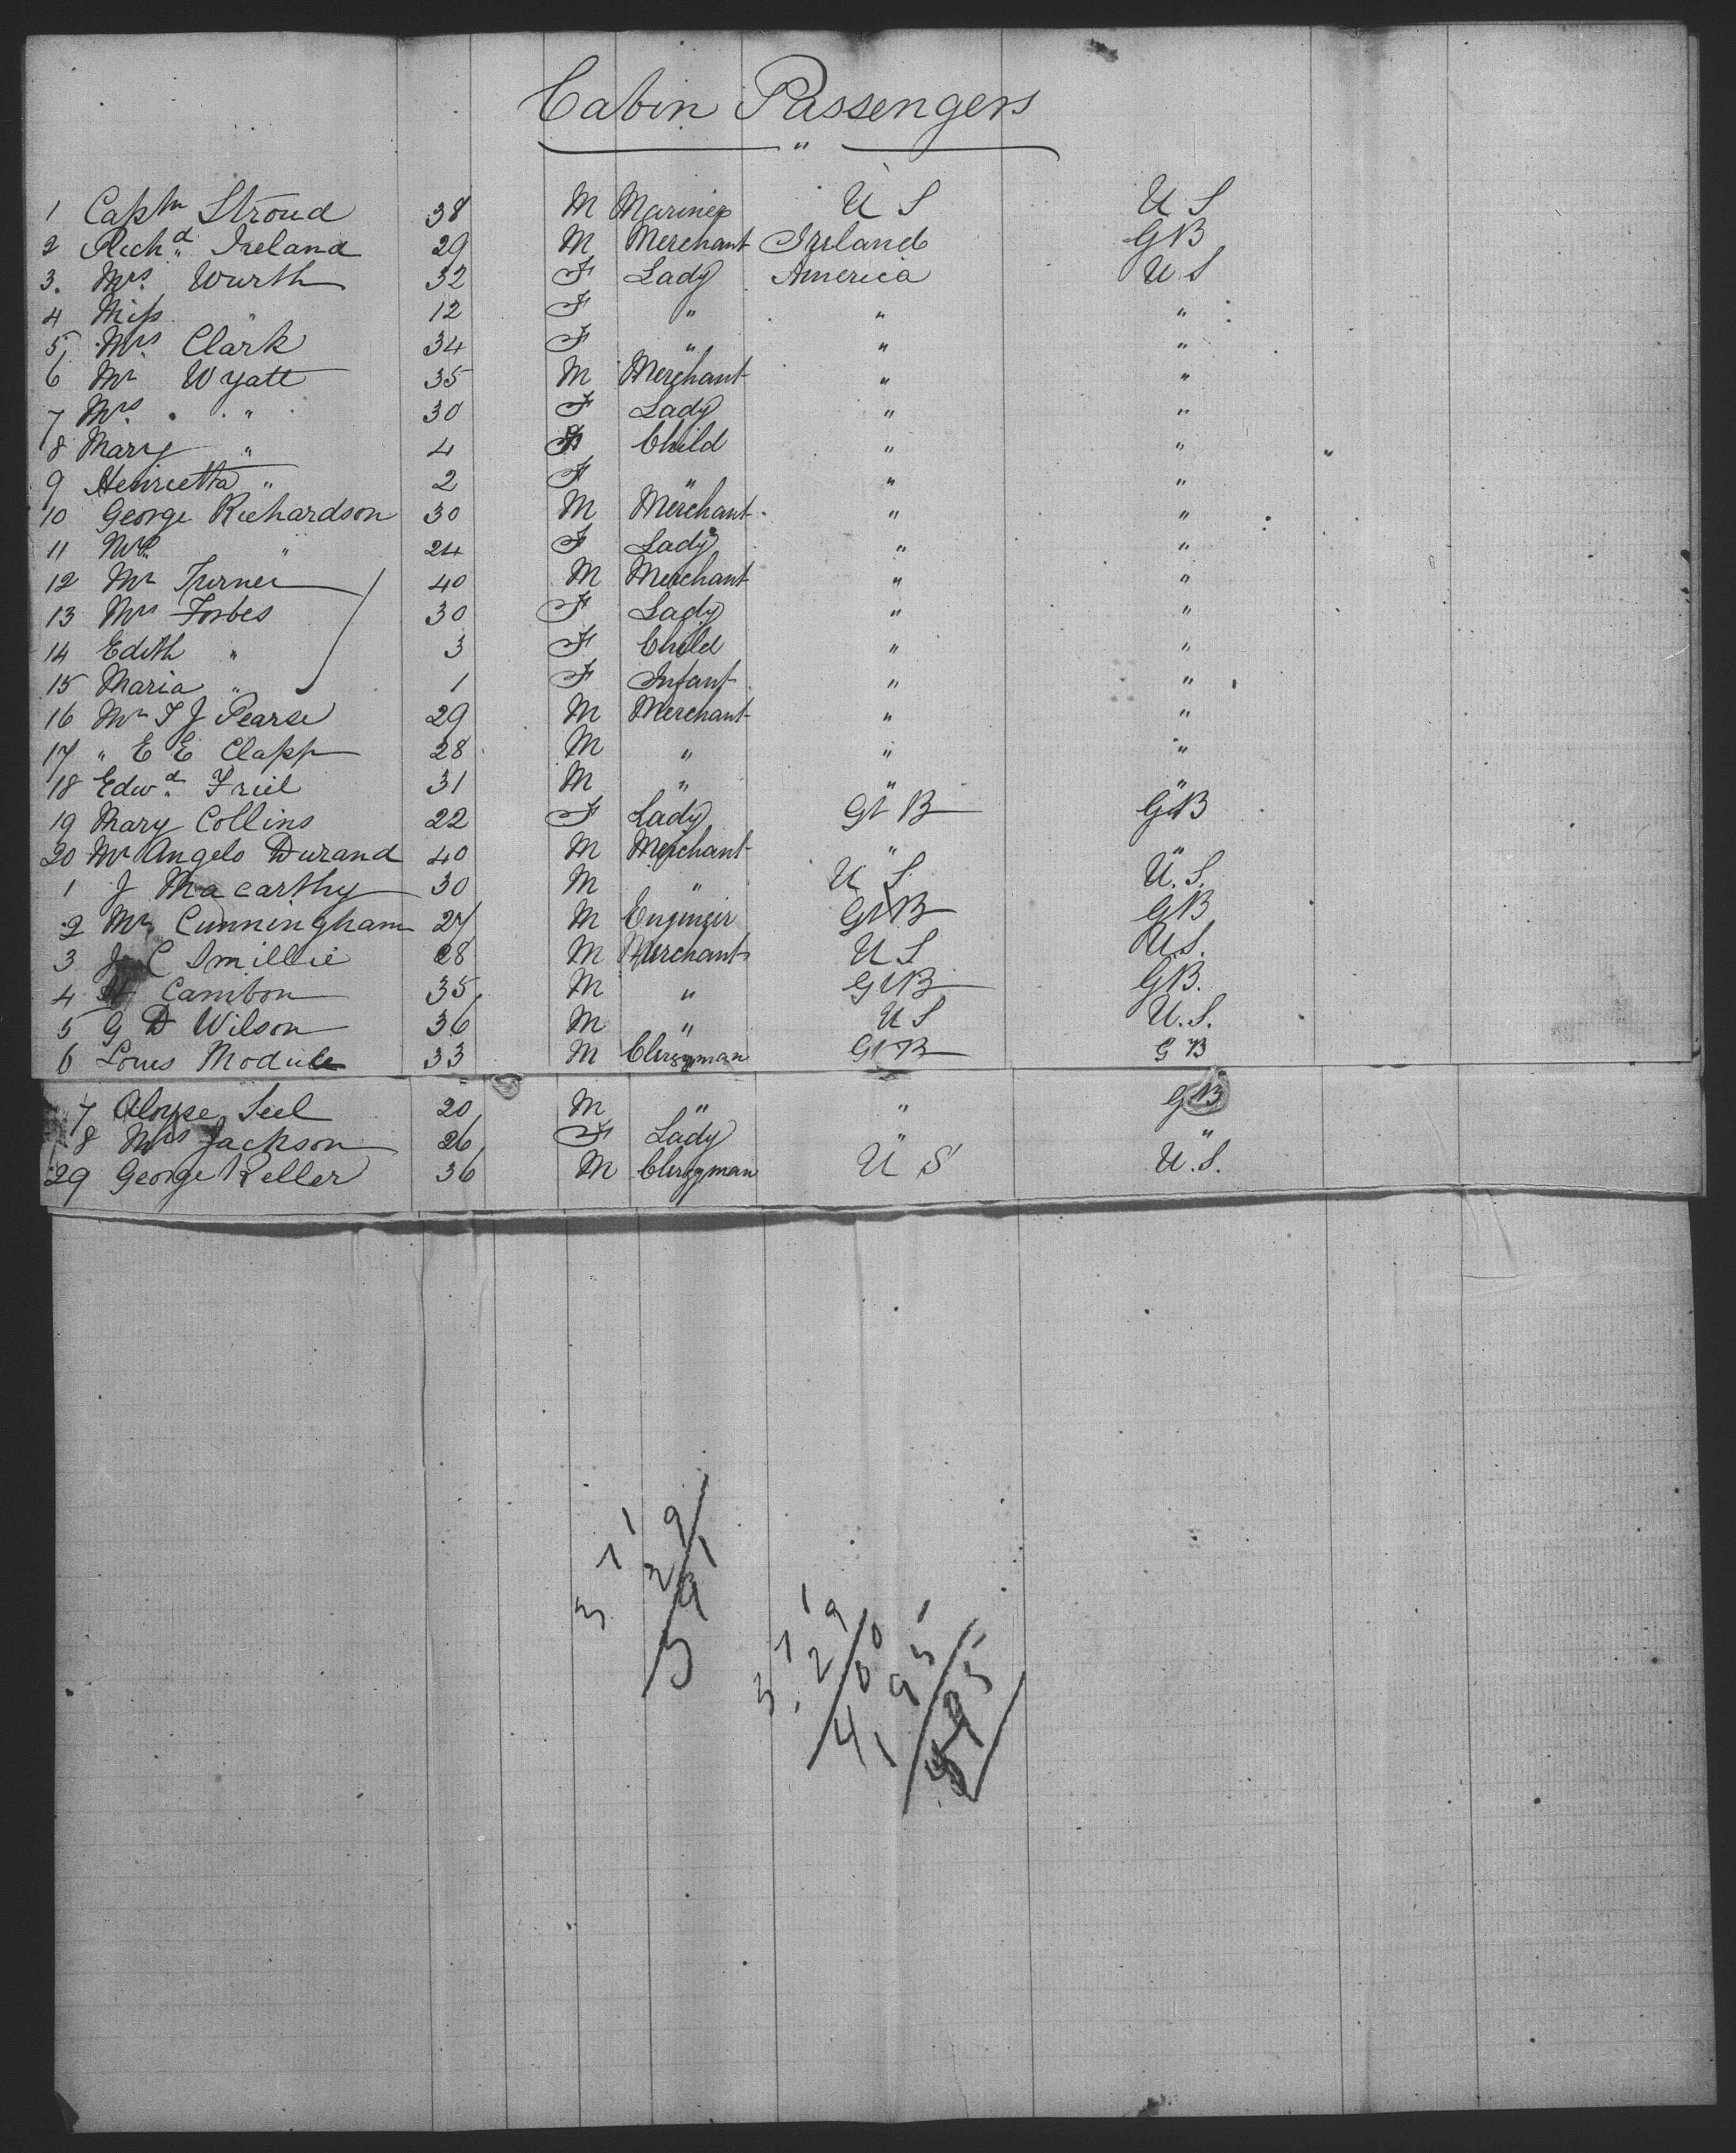 Cabin Passengers
"
1 Captn Stroud 38 M Mariner U S U S
2 Richd Ireland 29 M Merchant Ireland GB
3. Mrs. Wurth 32 F Lady America U S
4 Miss " 12 F " " "
5 Mrs Clark 34 F " " "
6 Mr Wyatt 35 M Merchant " "
7 Mrs. " 30 F Lady " "
8 Mary " 4 F Child " "
9 Henrietta " 2 F " " "
10 George Richardson 30 M Merchant " "
11 Mrs " 24 F Lady " "
12 Mr Turner 40 M Merchant " "
13 Mrs Forbes 30 F Lady " "
14 Edith " 3 F Child " "
15 Maria " 1 F Infant " "
16 Mr T J Pearse 29 M Merchant " "
17 " E E Clapp 28 M " " "
18 Edwd Friel 31 M " " "
19 Mary Collins 22 F Lady Gt B GB
20 Mr Angelo Durand 40 M Merchant " "
1 J Macarthy 30 M " U S. U.S.
2 Mr Cunningham 27 M Engineer Gt B GB
3 J C Smillie 28 M Merchant U S U.S.
4 Cambon 35 M " Gt B GB.
5 G D Wilson 36 M " U S U.S.
6 Louis Module 33 M Clergyman Gt B G B
7 Aloyse Seel 20 M " " GB
8 Mrs Jackson 26 F Lady " "
29 George Keller 36 M Clergyman U S U.S.
371
29
371
29
400
195
595